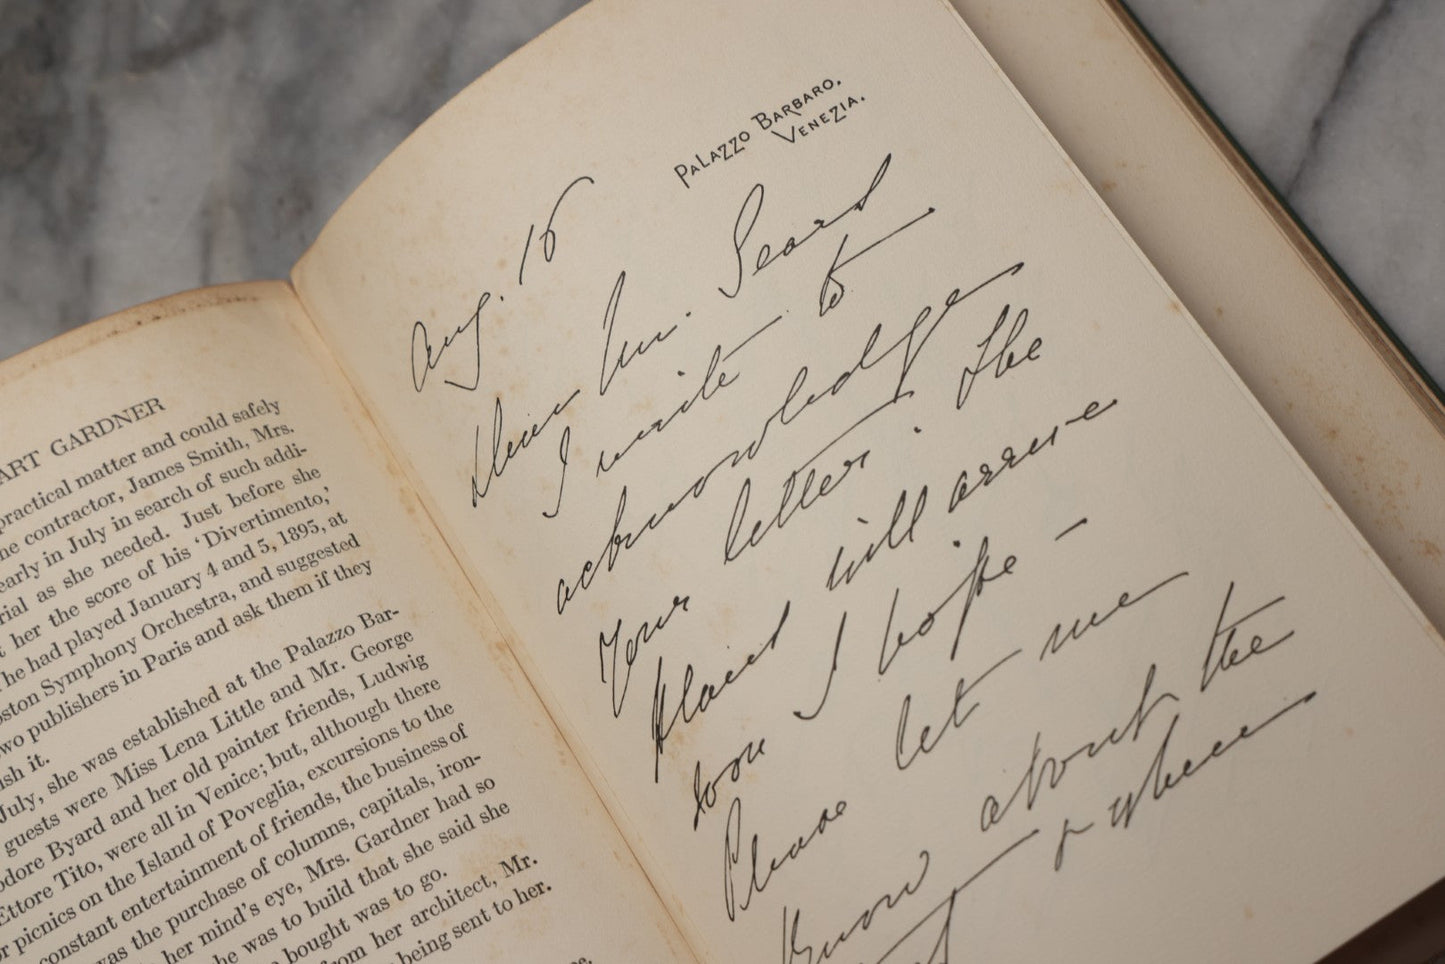 ART GARDNER
practical matter and could safely
he contractor, James Smith, Mrs.
early in July in search of such addi-
rial as she needed. Just before she
t her the score of his 'Divertimento,'
he had played January 4 and 5, 1895, at
oston Symphony Orchestra, and suggested
wo publishers in Paris and ask them if they
sh it.
July, she was established at the Palazzo Bar-
guests were Miss Lena Little and Mr. George
odore Byard and her old painter friends, Ludwig
Ettore Tito, were all in Venice; but, although there
or picnics on the Island of Poveglia, excursions to the
constant entertainment of friends, the business of
was the purchase of columns, capitals, iron-
her mind's eye, Mrs. Gardner had so
he was to build that she said she
bought was to go.
from her architect, Mr.
being sent to her.
PALAZZO BARBARO.
VENEZIA.
Aug. 16
Dear Mr. Sears
I write to
acknowledge
letter. The
Your
will arrive
soon I hope –
Please let me
know about the